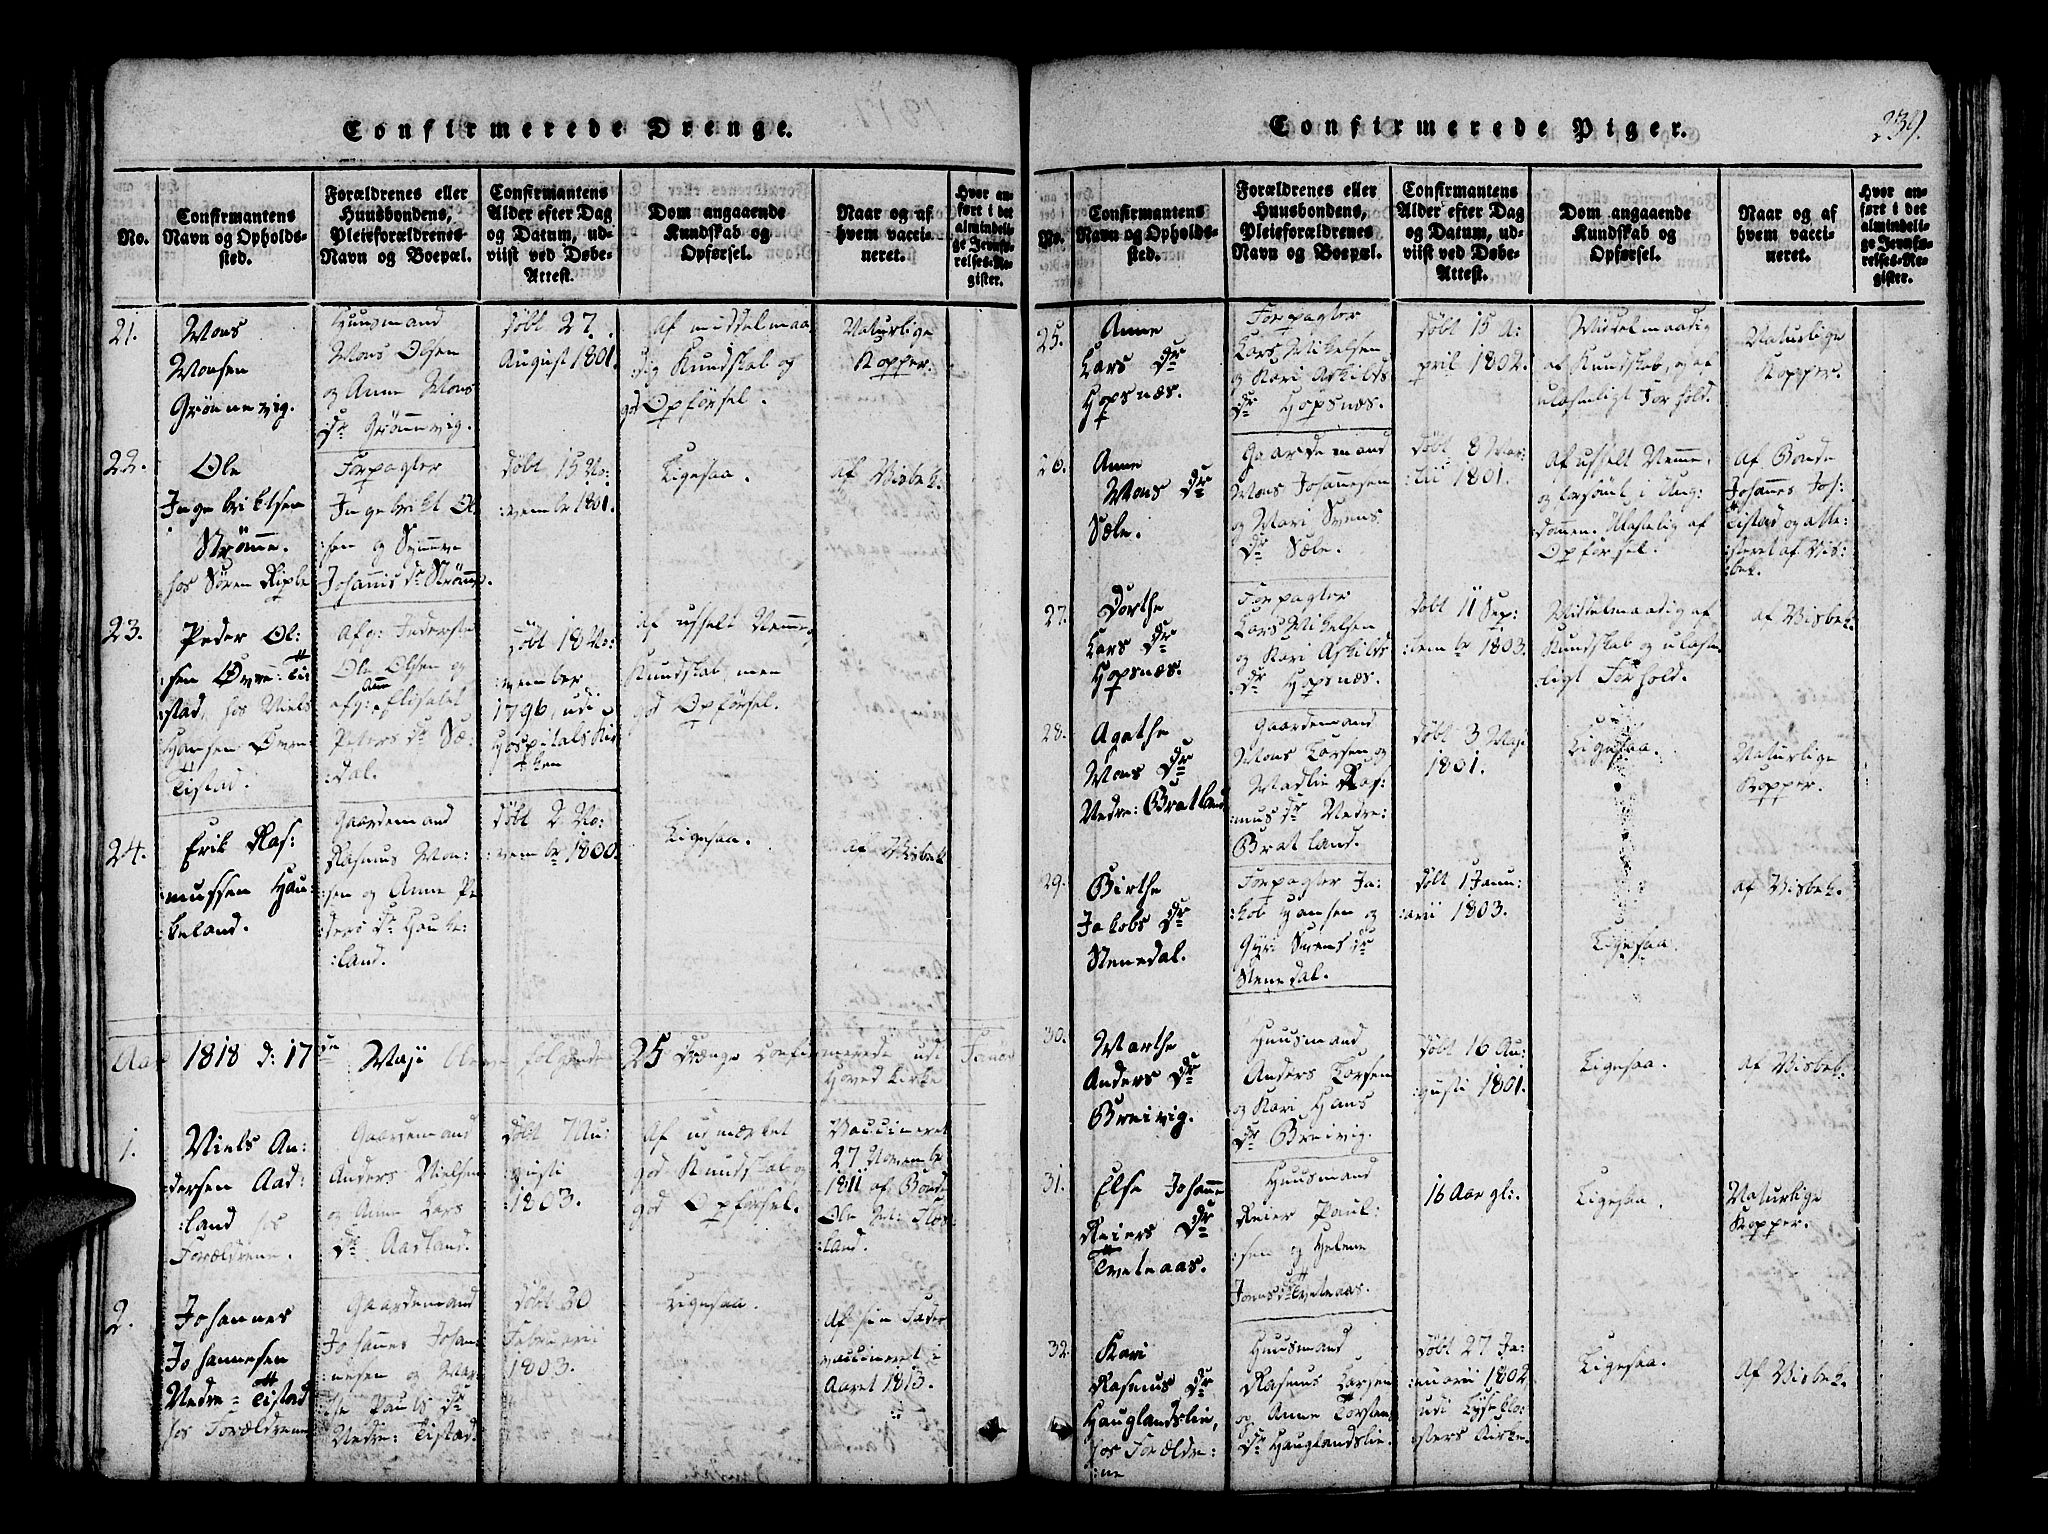 Confirmerede Drenge.
No.
Confirmantens
Navn og Opholds-
sted.
Forældrenes eller
Huusbondens,
Pleieforældrenes
Navn og Boepæl.
Confirmantens
Alder efter Dag
og Datum, ud-
viist ved Døbe-
Attest.
Dom angaaende
Kundskab og
Opførsel.
Naar og af
hvem vacci-
neret.
Hvor an-
ført i det
almindeli-
ge Jevnfø-
relses-Re-
gister.
21.
Mons
Monsen
Grønnevig.
Huusmand
Mons Olsen
og Anne Mons
Dr Grønnevig.
døbt 27
August 1801.
af middelmaa
dig Kundskab og
god Opførsel.
Naturlige
Kopper.
22.
Ole
Ingebriktsen
Strømme.
hos Søren Riple
Forpagter
Ingebrikt Ol
:sen og Synneve
Johannis Dr Strømme.
døbt 15 No:
:vembr 1801.
Ligesaa.
af Nisbek.
23.
Peder Ol:
sen Øvre: Ti
:stad, hos Niels
Hansen Øvre
Tistad.
afg: Inderste
Ole Olsen og
afg: Anne Elisabet
Peters Dr Sæ:
:dal.
døbt 18 No:
:vember
1796, udi
Hospitalskir
ken
af usselt Nemme,
Kundskab, men
god Opførsel.
24.
Erik Ras:
mussen Hau:
keland.
Gaardemand
Rasmus Mon:
sen og Anne Pe
ders Dr Hauke:
:land.
døbt 2 No:
:vembr 1800.
Ligesaa.
af Nisbek
Aar 1818 d: 17de Maji følgende 25 Drænge confirmerede udi
Hoved Kirke
1.
Niels An:
:dersen Aad:
:land hos
Forældrene.
Gaardemand
Anders Nielsen
og Anne Lars
Dr: Aadland.
døbt 7 Au:
:gusti
1803.
Af udmærket
god Kundskab og
god Opførsel.
Vaccineret
27 Novembr
1811 af Bonde
Ole
:land.
2.
Johannes
Johannesen
Nedre= Tistad
hos Forældrene
Gaardemand
Johannes Johan:
:nesen og Mar:
the Pauls Dr
Nedre: Tistad.
døbt 30
Februari
1803.
Ligesaa.
Af sin Fader
vaccineret i
Aaret 1813.
Confirmerede Piger.
239.
No.
Confirmantens
Navn og Opholds-
sted.
Forældrenes eller
Huusbondens,
Pleieforældrenes
Navn og Boepæl.
Confirmantens
Alder efter Dag
og Datum, ud-
viist ved Døbe-
Attest.
Dom angaaende
Kundskab og
Opførsel.
Naar og af
hvem vacci-
neret.
Hvor an-
ført i det
almindeli-
ge Jevnfø-
relses-Re-
gister.
25.
Anne
Lars Dr
Hopsnæs.
Forpagter
Lars Mikelsen
og Kari Askilds
Dr Hopsnæs.
døbt 15 A:
pril 1802.
Middelmaadig
af Kundskab, og af
ulasteligt Forhold.
Naturlige
Kopper.
26.
Anne
Mons Dr
Sæle.
Gaardemand
Mons Johannesen
og Mari Svens
Dr Sæle.
døbt 8 Mar:
:tii 1801.
af usselt Nemme,
og forsømt i Ung
dommen. Ulastelig af
Opførsel.
af Bonde
Johannes Joh:
Tistad og atte:
:steret af Nis:
:bek.
27.
Dorthe
Lars Dr
Hopsnæs.
Forpagter
Lars Mikelsen
og Kari Askilds
Dr Hopsnæs.
døbt 11 Sep:
:tembr 1803.
Middelmaadig af
Kundskab og ulaste
ligt Forhold.
af Nisbek.
28.
Agathe
Mons Dr
Nedre: Bratland
Gaardemand
Mons Larsen og
Madlie Ras:
:mus Dr Nedre:
Bratland.
døbt 3 Maji
1801.
Ligesaa.
Naturlige
Kopper.
29.
Birthe
Jakobs Dr
Stenedal.
Forpagter Ja:
:kob Hansen og
Gyri Svens Dr
Stenedal.
døbt 1 Janu:
:arii 1803.
Ligesaa.
af Nisbek.
30.
Marthe
Anders Dr
Breivig.
Huusmand
Anders Larsen
og Kari Hans
Dr Breivig.
døbt 16 Au:
:gusti 1801.
Ligesaa.
af Nisbek.
31.
Else Johanne
Reiers Dr
Tveteraas.
Huusmand
Reier Paul:
:sen og Helene
Jons Dr Tveteraas.
16 Aar gl:.
Ligesaa.
Naturlige
Kopper.
32.
Kari
Rasmus Dr
Hauglandslie,
hos Forældre:
:ne
Huusmand
Rasmus Larsen
og Anne Torstens
Dr Hauglandslie.
døbt 27 Ja:
:nuarii 1802
udi Lyseklo:
:sters Kirke.
Ligesaa.
Af Nisbek.